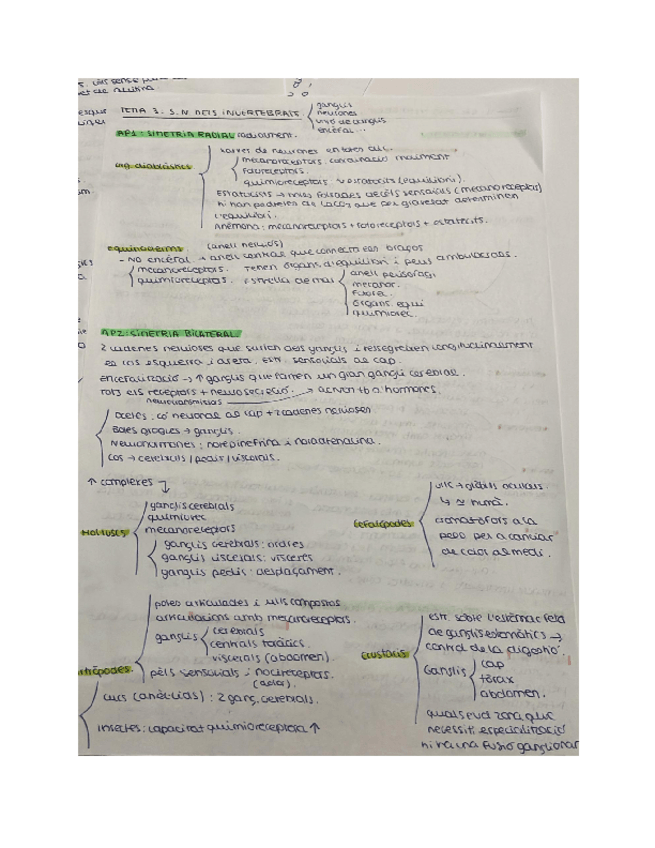 TEMA 3. S.N DELS INVERTEBRATS
ganglis
neurones
unió de ganglis
encèfal...
AP1: SIMETRIA RADIAL radialment.
xarxes de neurones en tot el
mecanoreceptors. moviment
fotoreceptors.
quimioreceptors. (equilibri).
org. diablàstics
Estatocists → cèl·ls sensorials (mecanoreceptors)
hi han pedretes de calci que per gravetat determinen
l'equilibri.
Anèmona: mecanoreceptors + fotoreceptors + estatocists.
equinoderms (anell nerviós)
- NO encèfal → anell central que connecta els braços
mecanoreceptors. Tenen òrgans d'equilibri i peus ambulacrals.
quimioreceptors. Estrella de mar
mecanor.
fotorec.
òrgans equi
quimiorec.
AP2: SIMETRIA BILATERAL
2 cadenes nervioses que surten dels ganglis i ressegueixen longitudinalment
esquerra i dreta. estr. sensorials al cap.
encefalització → ↑ ganglis que formen un gran gangli cerebral.
tots els receptors + neurosecreció. → actuen tb a hormones.
neurotransmissors
neuronal al cap + 2 cadenes nervioses
Boles grogues → ganglis.
Neurohormones: norepinefrina i noradrenalina.
cos → cerebrals / pedis / viscerals.
↑ complexes
Mol·luscs
ganglis cerebrals
quimiorec
mecanoreceptors
ganglis cerebrals: ordres
ganglis viscerals: vísceres
ganglis pedis: desplaçament.
Cefalòpodes
ulls → glòbuls oculars
↳ ≃ humà.
cromatòfors a la
pell per a canviar
de color al medi.
potes articulades i ulls compostos
articulacions amb mecanoreceptors.
ganglis
cerebrals
centrals toràcics.
viscerals (abdomen).
pèls sensorials i nociceptors.
(dolor).
cucs (anèl·lids): 2 gang. cerebrals.
insectes: capacitat quimioreceptora ↑
Crustacis
estr. sobre l'estómac feta
de ganglis estomàtics →
control de la digestió.
Ganglis
cap
tòrax
abdomen.
qualsevol zona que
necessiti especialització
hi ha una fusió ganglionar